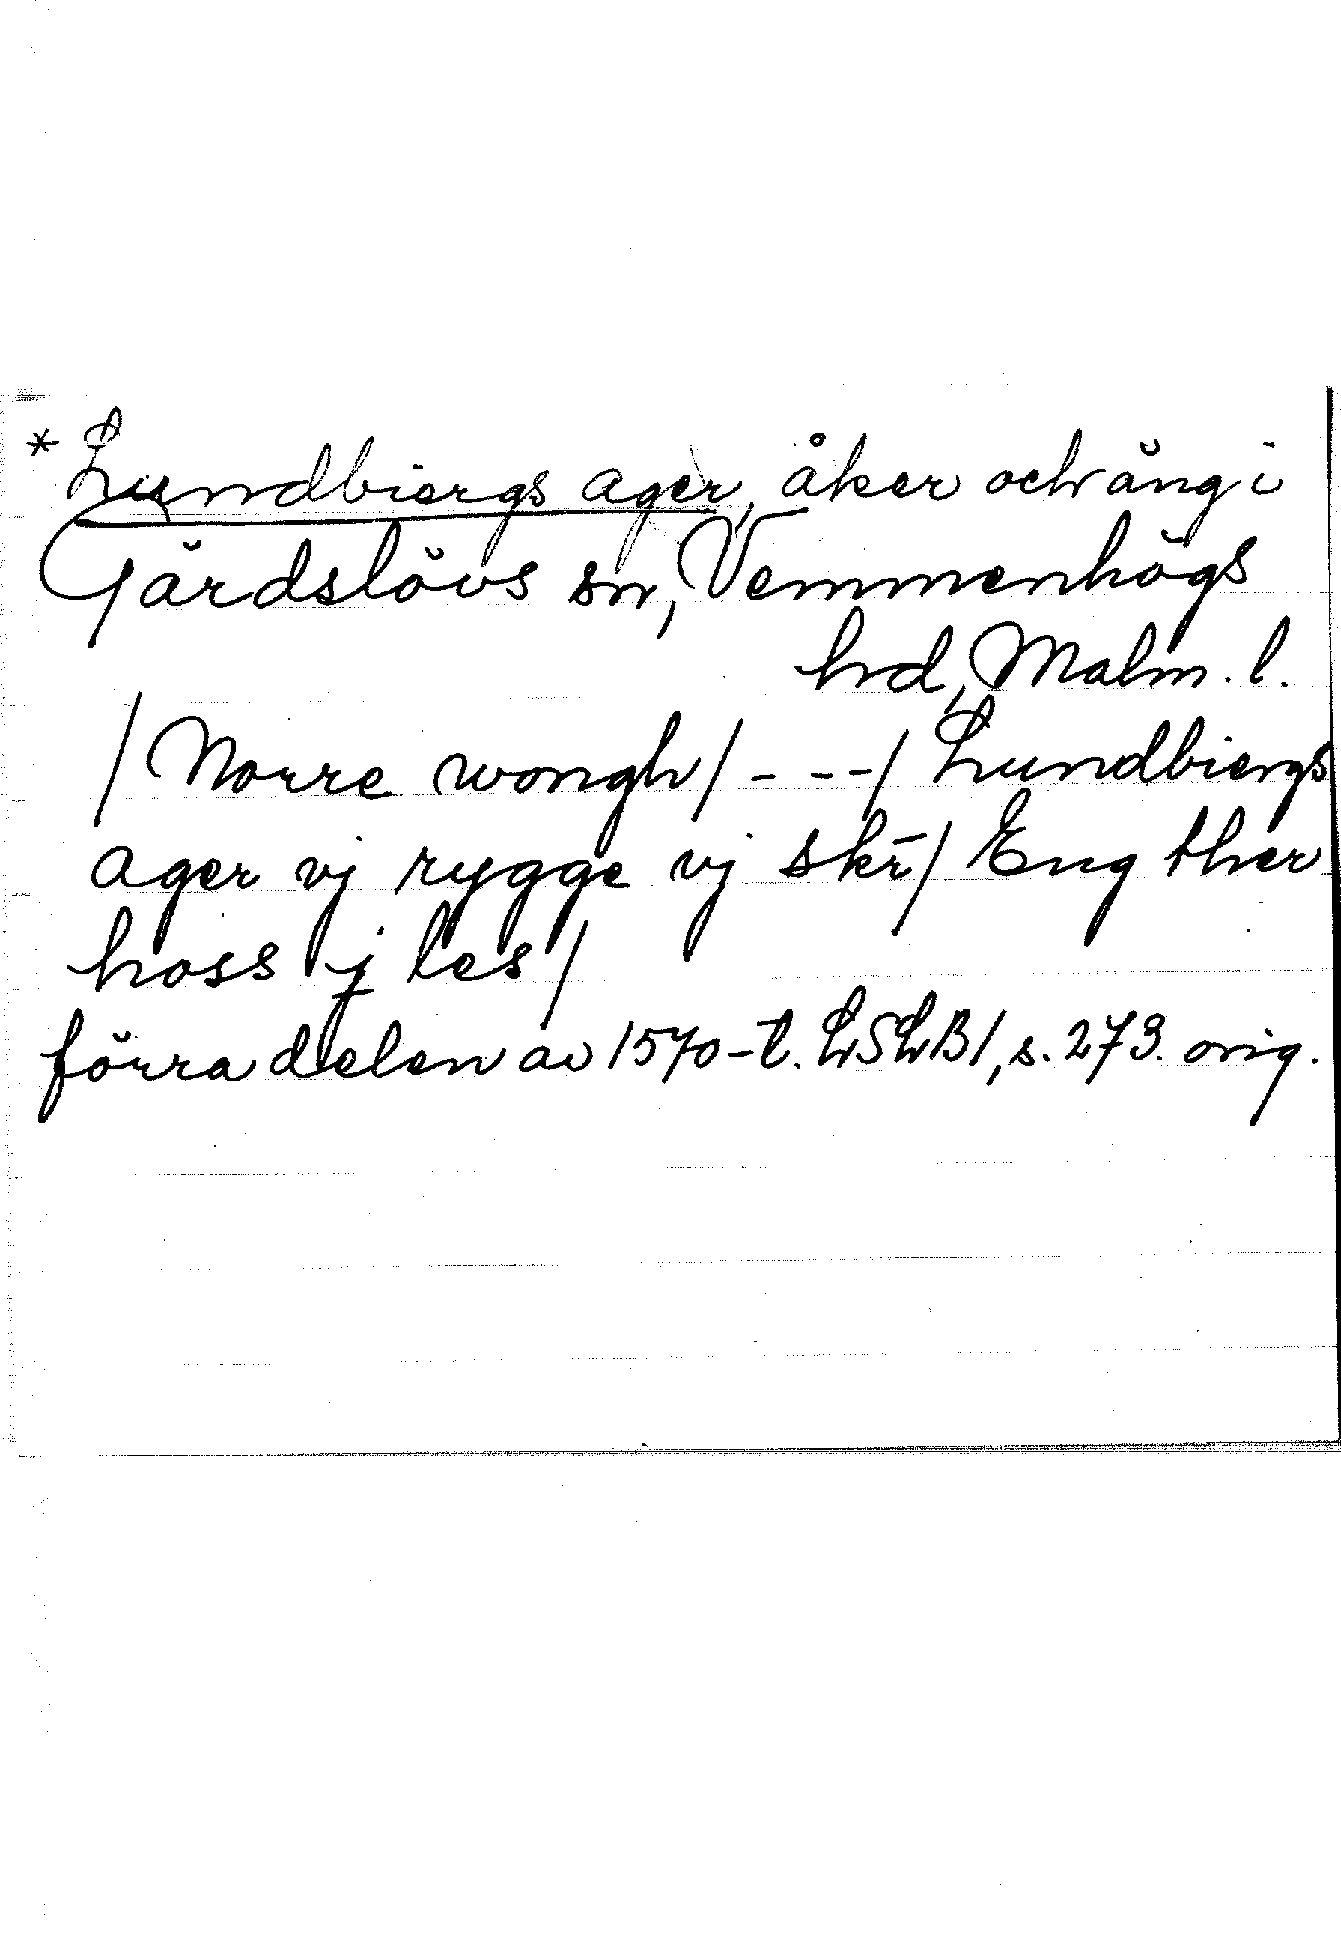 * Lundbiergs ager, åker och äng i
Gärdslövs sn, Vemmenhögs
hd, Malm. l.
/ Norre wongh / - - - / Lundbiergs
ager vj rygge vj skr̄ / Eng ther
hoss j les /
förra delen av 1570-t. LSLB 1, s. 273. orig.